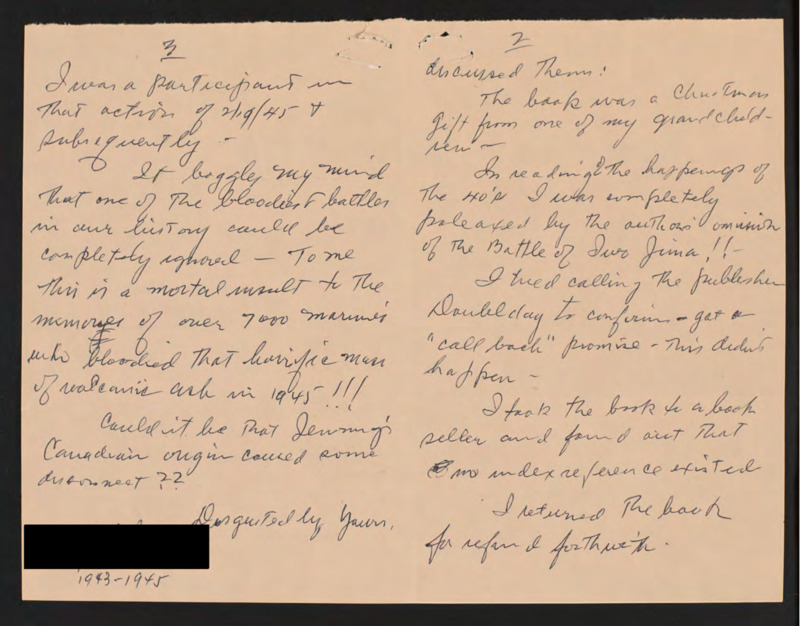 2
discussed Them:
The book was a Christmas
gift from one of my grandchild-
ren -
In reading the happenings of
the 40's I was completely
poleaxed by the authors omission
of the Battle of Iwo Jima!! -
I tried calling the publisher
Doubleday to confirm - got a
"call back" promise - This didn't
happen -
I took the book to a book
seller and found out that
no index reference existed
I returned The book
for refund forthwith.
3
I was a participant in
that action of 2/19/45 &
subsequently -
It boggles my mind
that one of the bloodiest battles
in our history could be
completely ignored - To me
this is a mortal insult to the
memories of over 7000 marines
who bloodied that horrific mass
of volcanic ash in 1945!!!
Could it be that Jennings
Canadian origin caused some
disconnect ??
Disgustedly Yours,
1943-1945